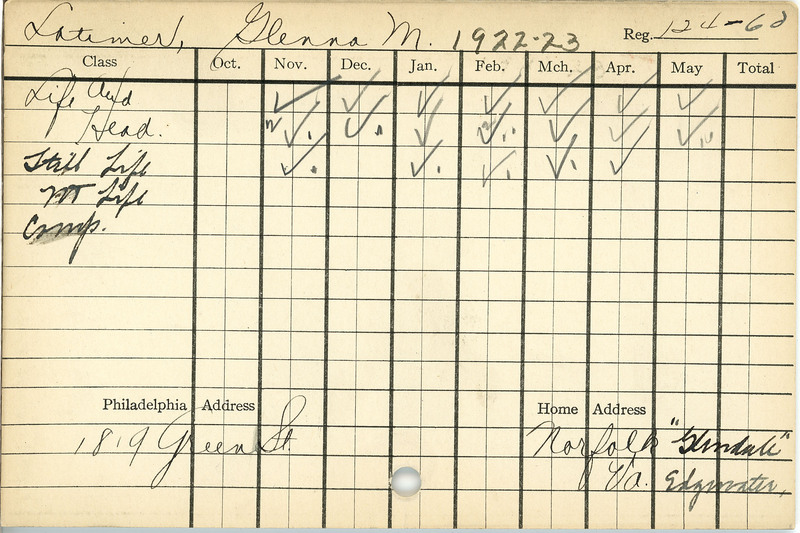 Latimer, Glenna M. 1922-23 Reg. 124-60
Class Oct. Nov. Dec. Jan. Feb. Mch. Apr. May Total
Life and ✓ ✓ ✓ ✓ ✓ ✓ ✓
Head. ✓ ✓ ✓ ✓ ✓ ✓ ✓
Still Life ✓ ✓ ✓ ✓ ✓
Life
Comp.
Philadelphia Address Home Address
1819 Green St. Norfolk "Glendale"
Va. Edgewater,